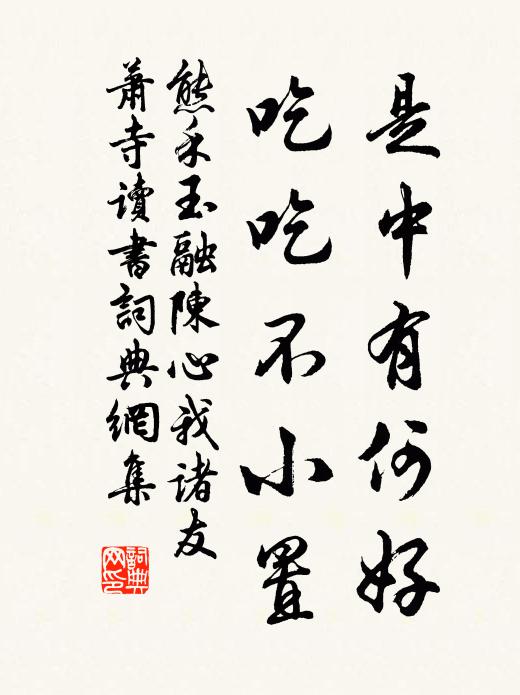 是中有何好
吃吃不小置
熊禾玉融陳心我諸友
蕭寺讀書詞典網集
詞典網印